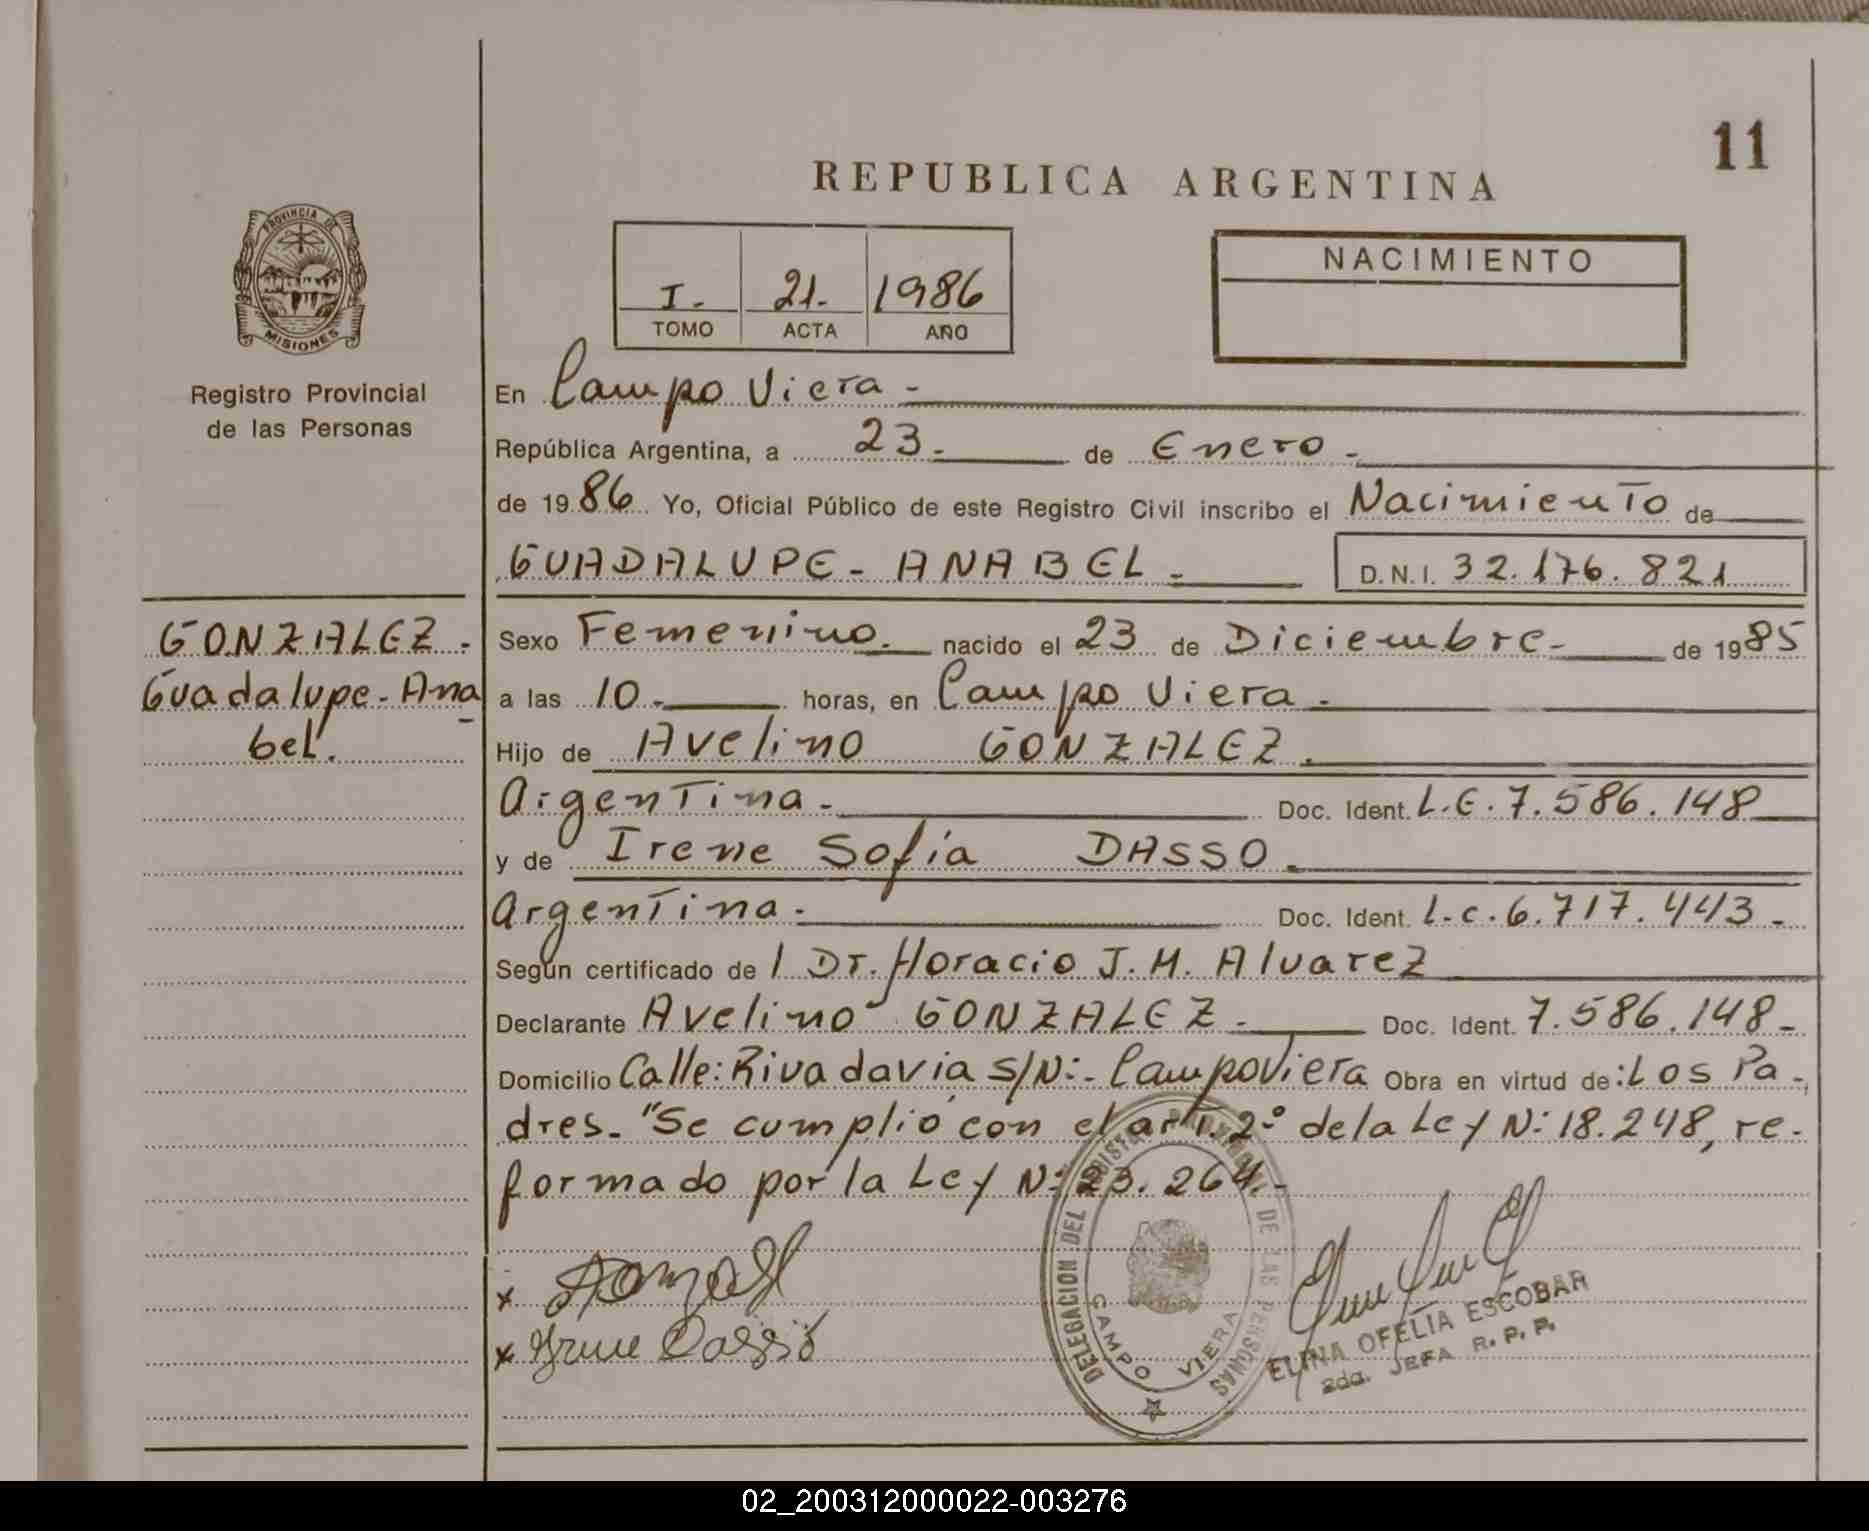 11
REPUBLICA ARGENTINA
PROVINCIA DE
MISIONES
Registro Provincial
de las Personas
I.- 21.- 1986
TOMO ACTA AÑO
NACIMIENTO
En Campo Viera -
República Argentina, a 23.- de Enero.-
de 1986 Yo, Oficial Público de este Registro Civil inscribo el Nacimiento de
GUADALUPE - ANABEL.- D.N.I. 32.176.821
GONZALEZ.-
Guadalupe - Ana
bel.
Sexo Femenino.- nacido el 23 de Diciembre.- de 1985
a las 10.- horas, en Campo Viera.-
Hijo de Avelino GONZALEZ.-
Argentina.- Doc. Ident. L.E. 7.586.148
y de Irene Sofía DASSO.-
Argentina.- Doc. Ident. L.C. 6.717.443.-
Según certificado de l Dr. Horacio J. M. Alvarez
Declarante Avelino GONZALEZ.- Doc. Ident. 7.586.148-
Domicilio Calle: Rivadavia S/N:- Campo Viera Obra en virtud de: Los Pa-
dres.- "Se cumplió con el art. 2º de la Ley N: 18.248, re-
formado por la Ley N: 23.264.-
x
x Irene Dasso
DELEGACION DEL REGISTRO PROVINCIAL DE LAS PERSONAS
CAMPO VIERA
ELINA OFELIA ESCOBAR
2da. JEFA R. P. P.
02_200312000022-003276